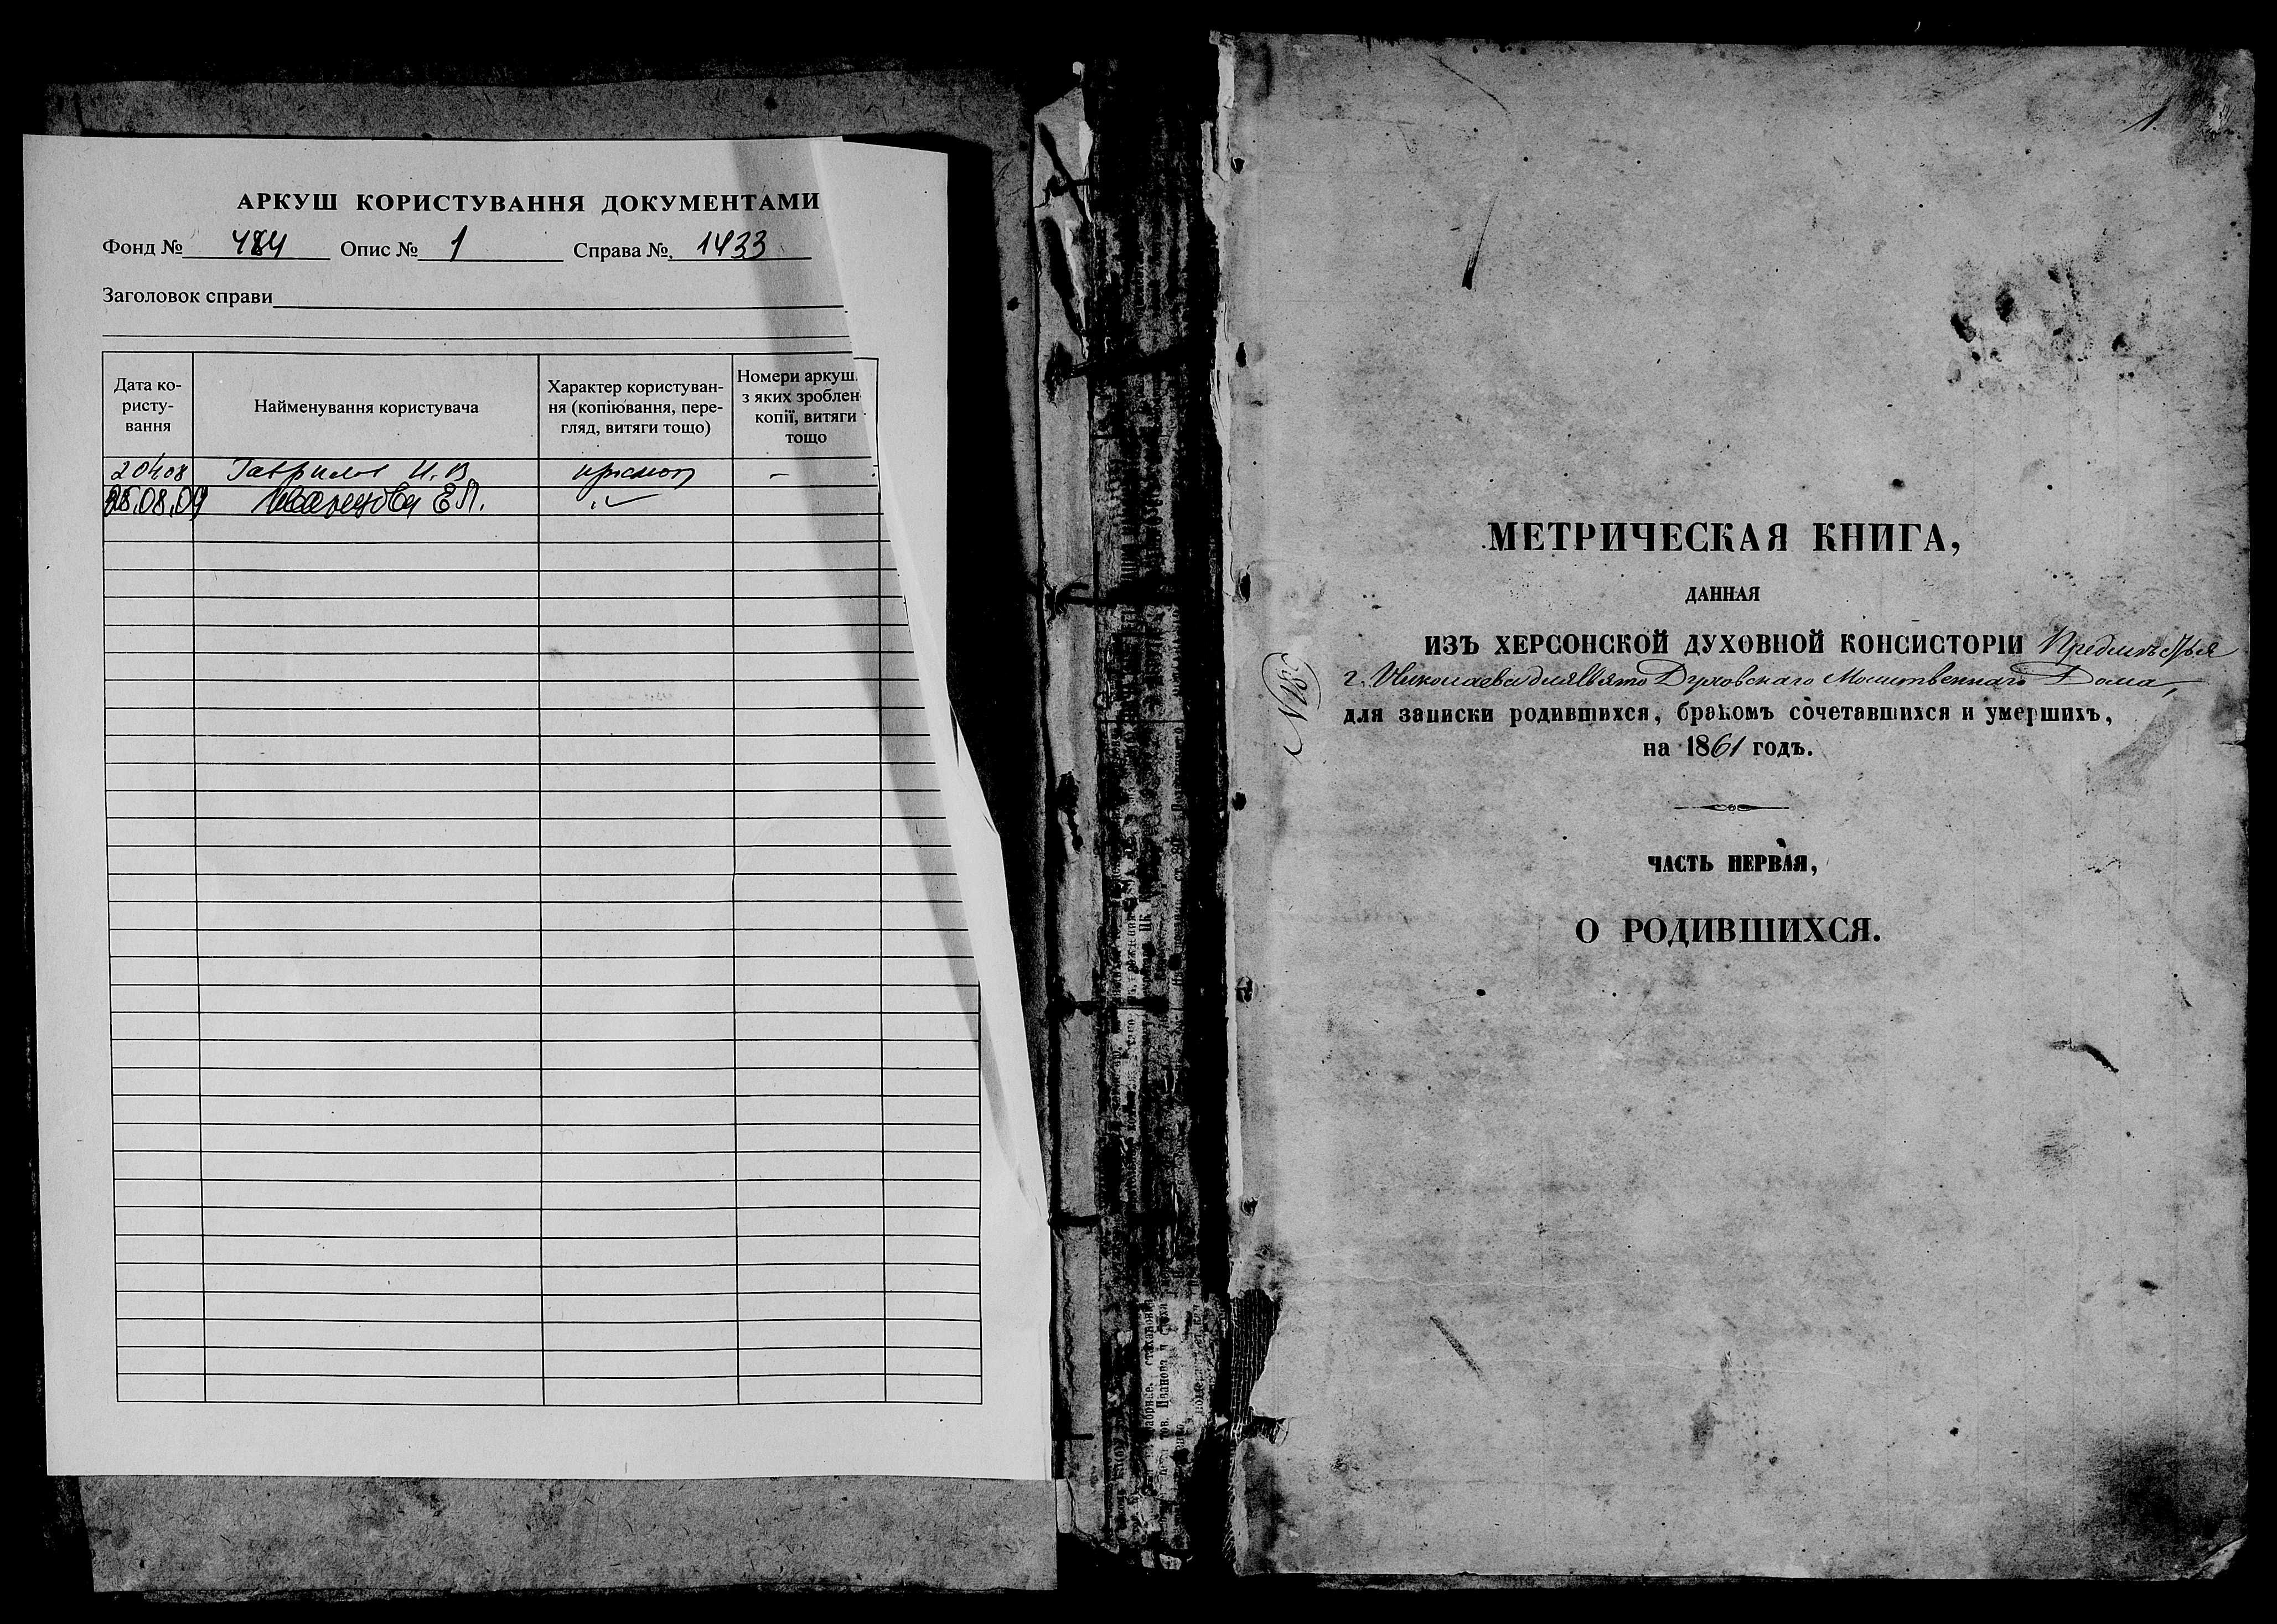 АРКУШ КОРИСТУВАННЯ ДОКУМЕНТАМИ
Фонд № 484 Опис № 1 Справа № 1433
Заголовок справи
Дата ко-
ристу-
вання
Найменування користувача
Характер користуван-
ня (копіювання, пере-
гляд, витяги тощо)
Номери аркуш
з яких зроблен
копії, витяги
тощо
Гаврилов И. В. –
28.08.09 Е.П.
1.
МЕТРИЧЕСКАЯ КНИГА,
ДАННАЯ
ИЗЪ ХЕРСОНСКОЙ ДУХОВНОЙ КОНСИСТОРІИ Предмѣстья
г. Николаева для Свято Духовскаго Молитвеннаго Дома,
для записки родившихся, бракомъ сочетавшихся и умершихъ,
на 1861 годъ.
ЧАСТЬ ПЕРВАЯ,
О РОДИВШИХСЯ.